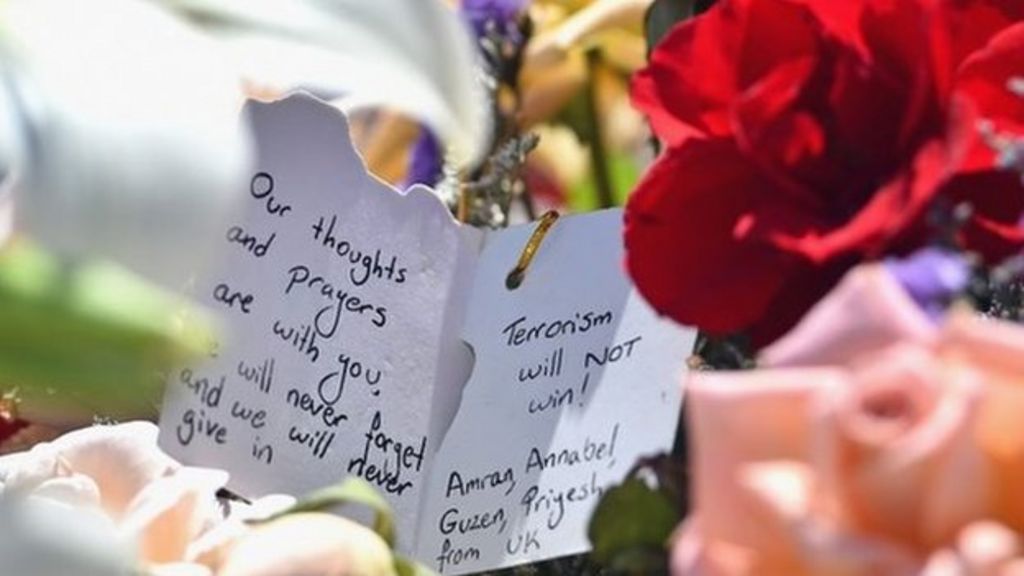 Our thoughts
and prayers
are with you,
will never forget
and we will never
give in
Terrorism
will NOT
win!
Amran, Annabel,
Guzen, Priyesh
from UK